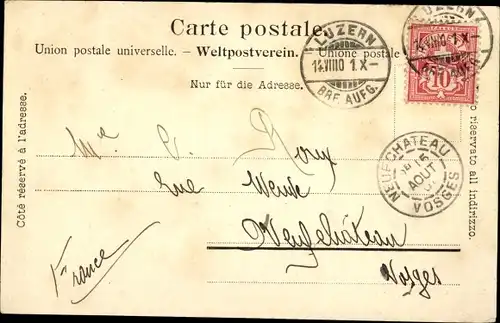 Carte postale.
Union postale universelle. – Weltpostverein. – Unione postale
Nur für die Adresse.
Côté réservé à l'adresse.
riservato all indirizzo.
LUZERN
14.VIII.10 1.X–
BRF. AUFG.
LUZERN
10
NEUFCHATEAU
15
AOUT
VOSGES
Me C. Roux
rue Neuve
Neufchâteau
Vosges
France